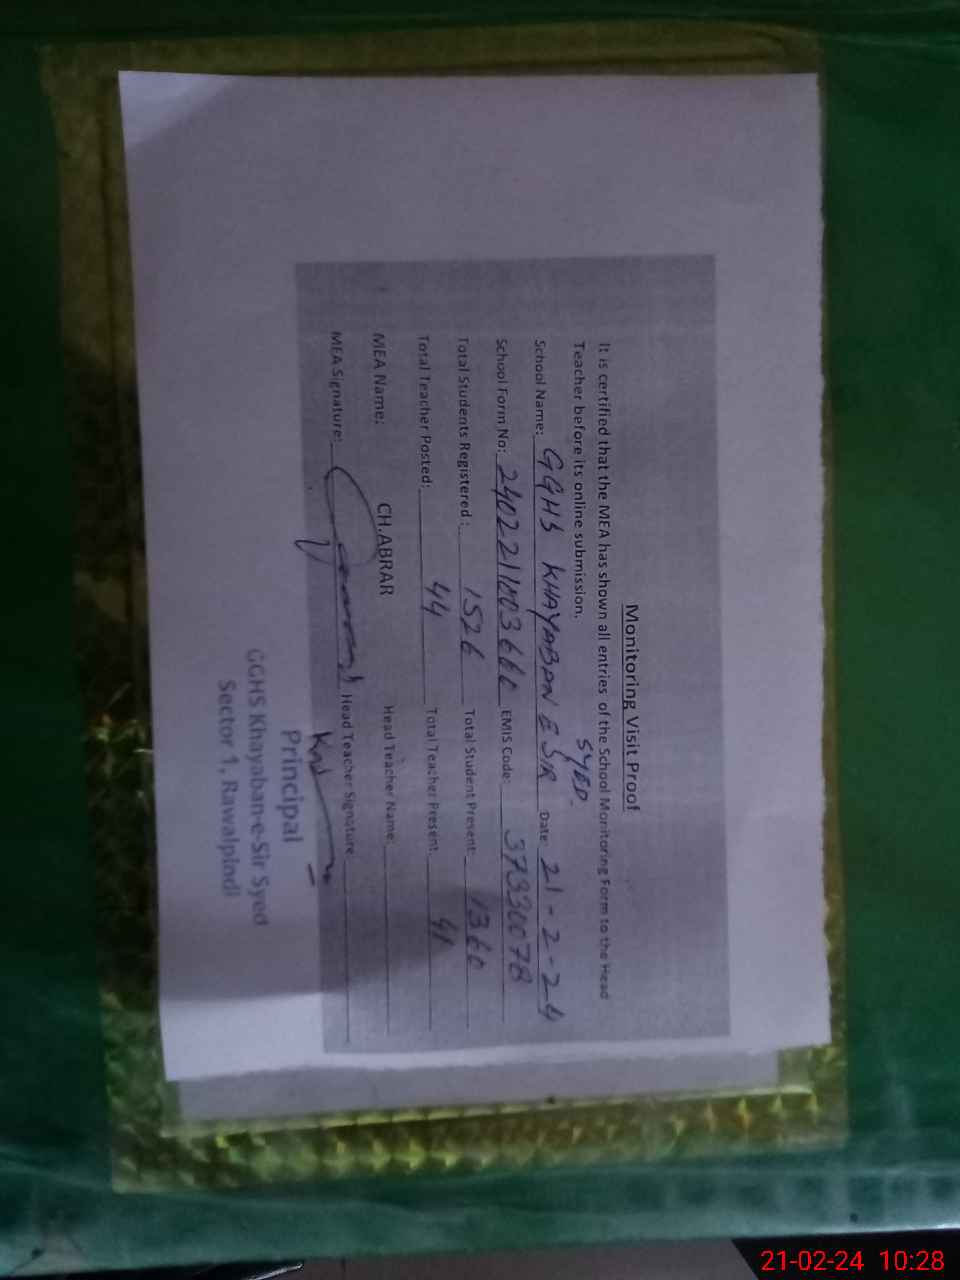 Monitoring Visit Proof
It is certified that the MEA has shown all entries of the School Monitoring Form to the Head
Teacher before its online submission.
SYED.
School Name: GGHS KHAYABAN E SIR Date: 21-2-24
School Form No: EMIS Code: 37330078
Total Students Registered: 1526 Total Student Present: 1360
Total Teacher Posted: 44 Total Teacher Present: 41
MEA Name: CH.ABRAR Head Teacher Name:
MEA Signature: Head Teacher Signature
Principal
GGHS Khayaban-e-Sir Syed
Sector 1, Rawalpindi
21-02-24 10:28